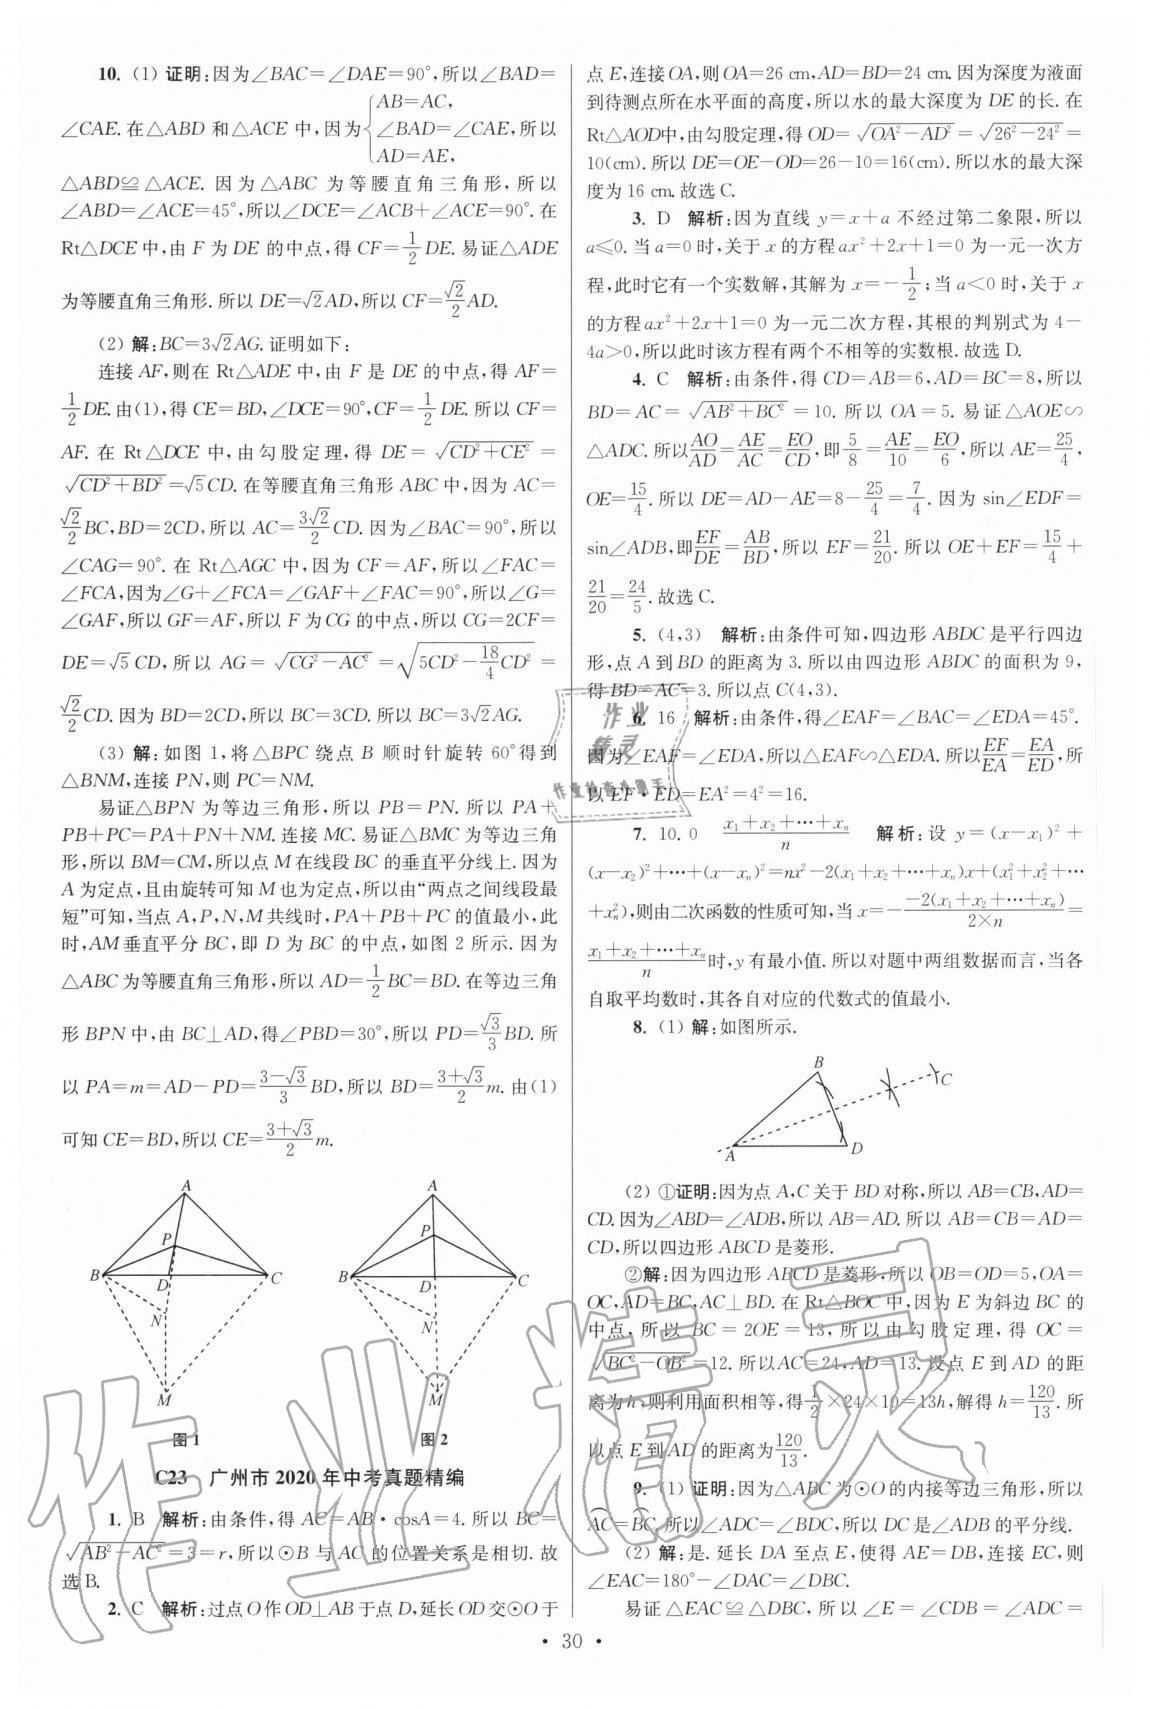 10. (1) 证明:因为∠BAC=∠DAE=90°,所以∠BAD=
∠CAE. 在△ABD 和△ACE 中,因为{AB=AC, ∠BAD=∠CAE, AD=AE, 所以
△ABD≌△ACE. 因为△ABC 为等腰直角三角形,所以
∠ABD=∠ACE=45°,所以∠DCE=∠ACB+∠ACE=90°. 在
Rt△DCE 中,由 F 为 DE 的中点,得 CF=1/2 DE. 易证△ADE
为等腰直角三角形. 所以 DE=√2AD,所以 CF=√2/2 AD.
(2) 解:BC=3√2AG. 证明如下:
连接 AF,则在 Rt△ADE 中,由 F 是 DE 的中点,得 AF=
1/2 DE. 由(1),得 CE=BD,∠DCE=90°,CF=1/2 DE. 所以 CF=
AF. 在 Rt△DCE 中,由勾股定理,得 DE=√(CD²+CE²)=
√(CD²+BD²)=√5CD. 在等腰直角三角形 ABC 中,因为 AC=
√2/2 BC,BD=2CD,所以 AC=3√2/2 CD. 因为∠BAC=90°,所以
∠CAG=90°. 在 Rt△AGC 中,因为 CF=AF,所以∠FAC=
∠FCA,因为∠G+∠FCA=∠GAF+∠FAC=90°,所以∠G=
∠GAF,所以 GF=AF,所以 F 为 CG 的中点,所以 CG=2CF=
DE=√5 CD,所以 AG=√(CG²-AC²)=√(5CD²-18/4 CD²)=
√2/2 CD. 因为 BD=2CD,所以 BC=3CD. 所以 BC=3√2AG.
(3) 解:如图 1,将△BPC 绕点 B 顺时针旋转 60°得到
△BNM,连接 PN,则 PC=NM.
易证△BPN 为等边三角形,所以 PB=PN. 所以 PA+
PB+PC=PA+PN+NM. 连接 MC. 易证△BMC 为等边三角
形,所以 BM=CM,所以点 M 在线段 BC 的垂直平分线上. 因为
A 为定点,且由旋转可知 M 也为定点,所以由“两点之间线段最
短”可知,当点 A,P,N,M 共线时,PA+PB+PC 的值最小,此
时,AM 垂直平分 BC,即 D 为 BC 的中点,如图 2 所示. 因为
△ABC 为等腰直角三角形,所以 AD=1/2 BC=BD. 在等边三角
形 BPN 中,由 BC⊥AD,得∠PBD=30°,所以 PD=√3/3 BD. 所
以 PA=m=AD-PD=(3-√3)/3 BD,所以 BD=(3+√3)/2 m. 由(1)
可知 CE=BD,所以 CE=(3+√3)/2 m.
A
P
B D C
N
M
图 1
A
P
B D C
N
M
图 2
C23 广州市 2020 年中考真题精编
1. B 解析:由条件,得 AC=AB·cosA=4. 所以 BC=
√(AB²-AC²)=3=r,所以⊙B 与 AC 的位置关系是相切. 故
选 B.
2. C 解析:过点 O 作 OD⊥AB 于点 D,延长 OD 交⊙O 于
点 E,连接 OA,则 OA=26 cm,AD=BD=24 cm. 因为深度为液面
到待测点所在水平面的高度,所以水的最大深度为 DE 的长. 在
Rt△AOD中,由勾股定理,得 OD=√(OA²-AD²)=√(26²-24²)=
10(cm). 所以 DE=OE-OD=26-10=16(cm). 所以水的最大深
度为 16 cm. 故选 C.
3. D 解析:因为直线 y=x+a 不经过第二象限,所以
a≤0. 当 a=0 时,关于 x 的方程 ax²+2x+1=0 为一元一次方
程,此时它有一个实数解,其解为 x=-1/2;当 a<0 时,关于 x
的方程 ax²+2x+1=0 为一元二次方程,其根的判别式为 4-
4a>0,所以此时该方程有两个不相等的实数根. 故选 D.
4. C 解析:由条件,得 CD=AB=6,AD=BC=8,所以
BD=AC=√(AB²+BC²)=10. 所以 OA=5. 易证△AOE∽
△ADC. 所以AO/AD=AE/AC=EO/CD,即5/8=AE/10=EO/6,所以 AE=25/4,
OE=15/4. 所以 DE=AD-AE=8-25/4=7/4. 因为 sin∠EDF=
sin∠ADB,即EF/DE=AB/BD,所以 EF=21/20. 所以 OE+EF=15/4+
21/20=24/5. 故选 C.
5. (4,3) 解析:由条件可知,四边形 ABDC 是平行四边
形,点 A 到 BD 的距离为 3. 所以由四边形 ABDC 的面积为 9,
得 BD=AC=3. 所以点 C(4,3).
6. 16 解析:由条件,得∠EAF=∠BAC=∠EDA=45°.
因为∠EAF=∠EDA,所以△EAF∽△EDA. 所以EF/EA=EA/ED,所
以 EF·ED=EA²=4²=16.
7. 10.0 (x₁+x₂+⋯+xₙ)/n 解析:设 y=(x-x₁)²+
(x-x₂)²+⋯+(x-xₙ)²=nx²-2(x₁+x₂+⋯+xₙ)x+(x₁²+x₂²+⋯
+xₙ²),则由二次函数的性质可知,当 x=-(-2(x₁+x₂+⋯+xₙ))/(2×n)=
(x₁+x₂+⋯+xₙ)/n时,y 有最小值. 所以对题中两组数据而言,当各
自取平均数时,其各自对应的代数式的值最小.
8. (1) 解:如图所示.
B
C
A D
(2) ①证明:因为点 A,C 关于 BD 对称,所以 AB=CB,AD=
CD. 因为∠ABD=∠ADB,所以 AB=AD. 所以 AB=CB=AD=
CD,所以四边形 ABCD 是菱形.
②解:因为四边形 ABCD 是菱形,所以 OB=OD=5,OA=
OC,AD=BC,AC⊥BD. 在 Rt△BOC 中,因为 E 为斜边 BC 的
中点,所以 BC=2OE=13,所以由勾股定理,得 OC=
√(BC²-OB²)=12. 所以 AC=24,AD=13. 设点 E 到 AD 的距
离为 h,则利用面积相等,得1/2×24×10=13h,解得 h=120/13. 所
以点 E 到 AD 的距离为120/13.
9. (1) 证明:因为△ABC 为⊙O 的内接等边三角形,所以
⌒AC=⌒BC,所以∠ADC=∠BDC,所以 DC 是∠ADB 的平分线.
(2) 解:是. 延长 DA 至点 E,使得 AE=DB,连接 EC,则
∠EAC=180°-∠DAC=∠DBC.
易证△EAC≌△DBC,所以∠E=∠CDB=∠ADC=
• 30 •
作业
精灵
作业检查小助手
作业精灵